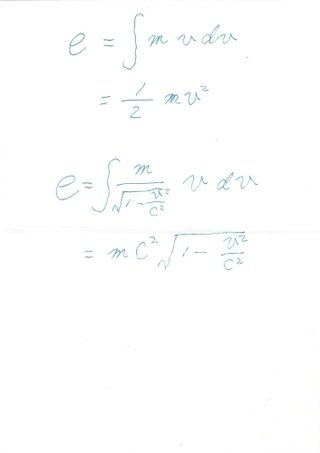 e = ∫ m v dv
= 1/2 mv²
e = ∫ m/√(1 - v²/c²) v dv
= mc² √(1 - v²/c²)